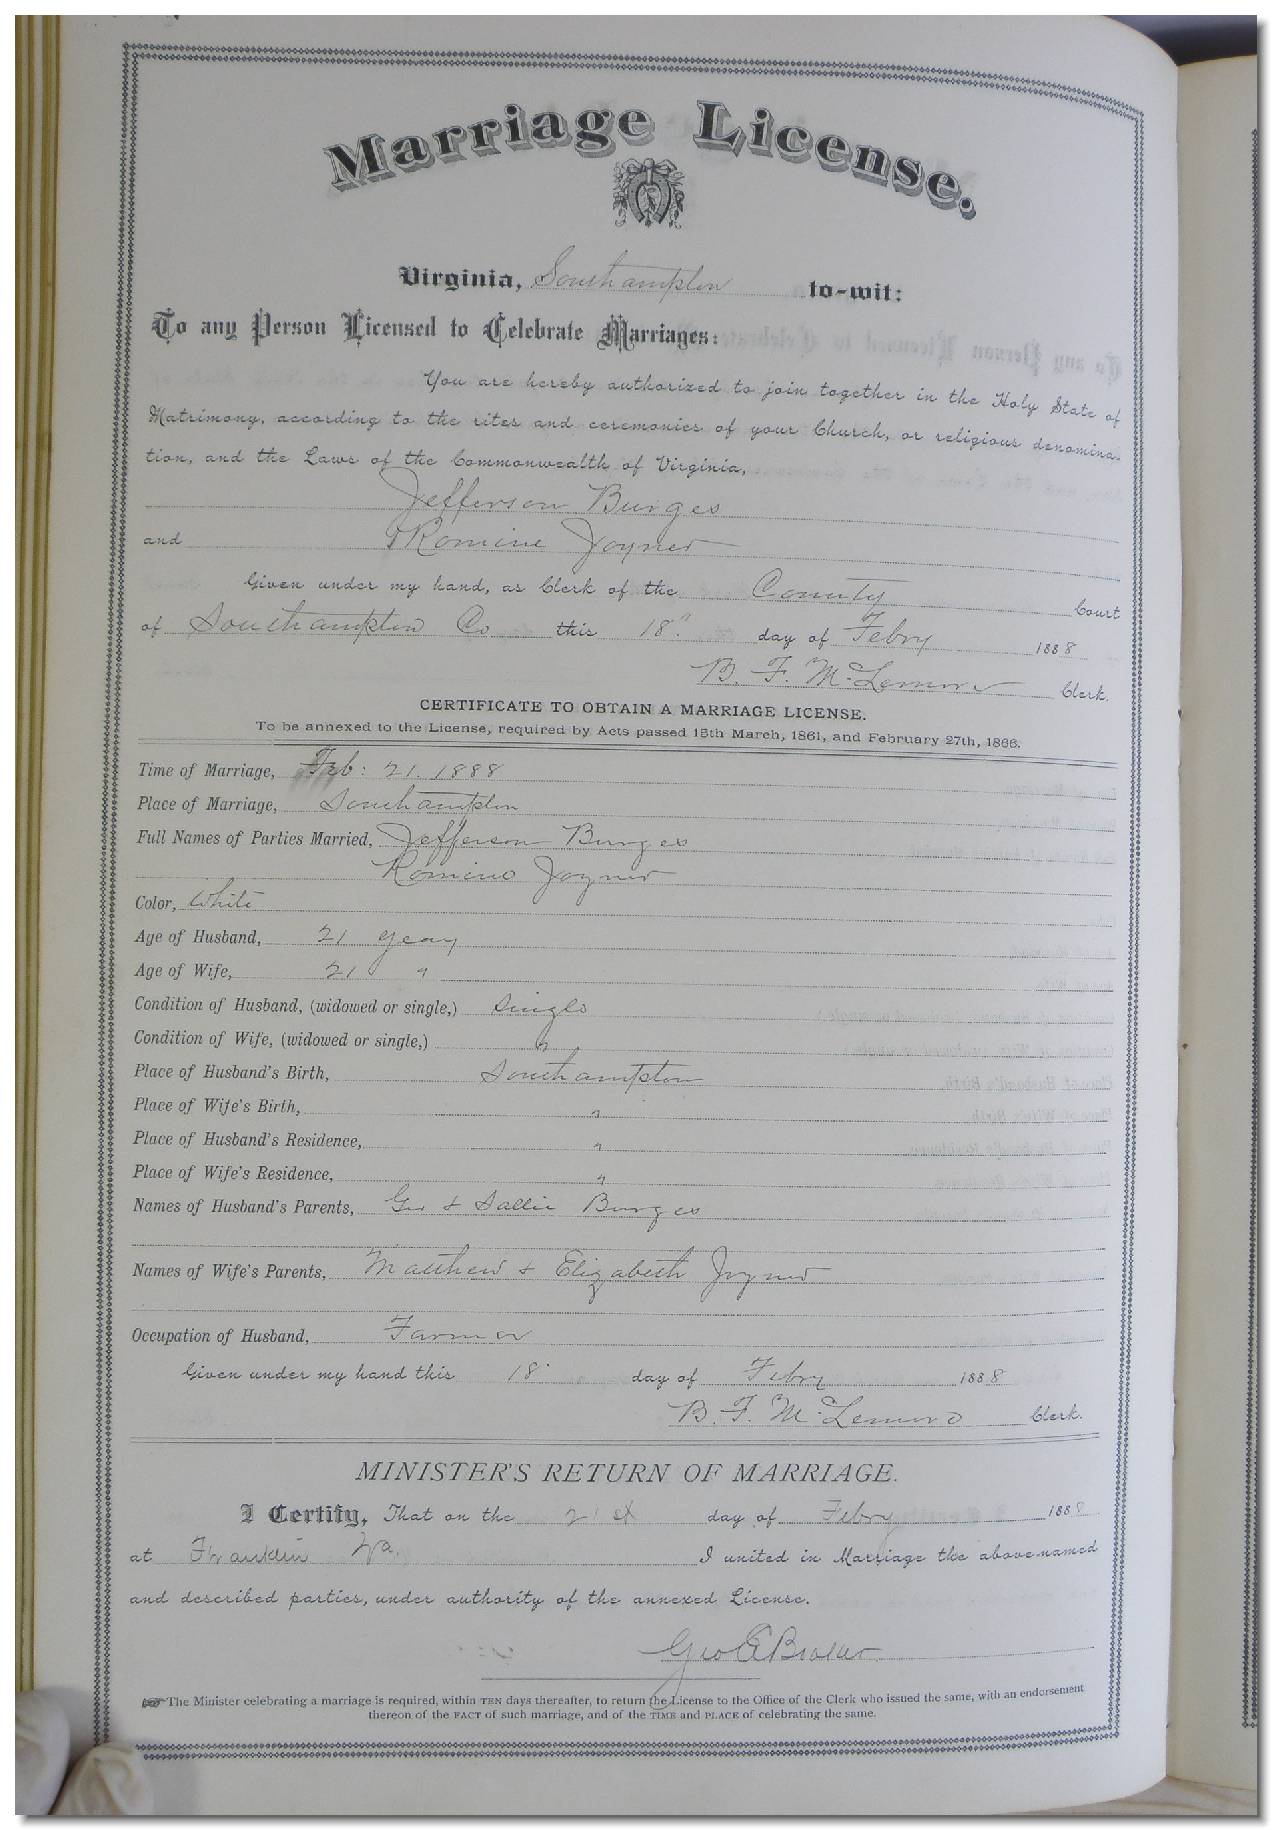 Marriage License.
Virginia, Southampton to-wit:
To any Person Licensed to Celebrate Marriages:
You are hereby authorized to join together in the Holy State of
Matrimony, according to the rites and ceremonies of your Church, or religious denomina-
tion, and the Laws of the Commonwealth of Virginia,
Jefferson Burges
and Romine Joyner
Given under my hand, as Clerk of the County Court
of Southampton Co this 18" day of Febry 1888
B. F. McLemore Clerk.
CERTIFICATE TO OBTAIN A MARRIAGE LICENSE.
To be annexed to the License, required by Acts passed 15th March, 1861, and February 27th, 1866.
Time of Marriage, Feb: 21. 1888
Place of Marriage, Southampton
Full Names of Parties Married, Jefferson Burges
Romine Joyner
Color, White
Age of Husband, 21 years
Age of Wife, 21 "
Condition of Husband, (widowed or single,) Single
Condition of Wife, (widowed or single,) "
Place of Husband's Birth, Southampton
Place of Wife's Birth, "
Place of Husband's Residence, "
Place of Wife's Residence, "
Names of Husband's Parents, Geo & Sallie Burges
Names of Wife's Parents, Matthew & Elizabeth Joyner
Occupation of Husband, Farmer
Given under my hand this 18" day of Febry 1888
B. F. McLemore Clerk.
MINISTER'S RETURN OF MARRIAGE.
I Certify, That on the 21st day of Febry 1888
at Franklin Va I united in Marriage the above-named
and described parties, under authority of the annexed License.
Geo E
The Minister celebrating a marriage is required, within TEN days thereafter, to return the License to the Office of the Clerk who issued the same, with an endorsement
thereon of the FACT of such marriage, and of the TIME and PLACE of celebrating the same.